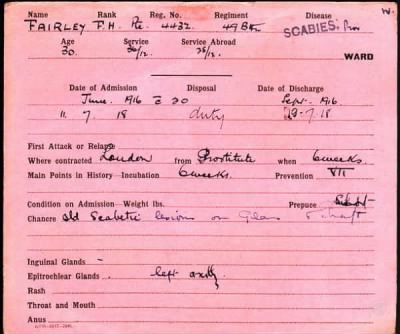 Name Rank Reg. No. Regiment Disease W.
FAIRLEY F.H. Pte. 4432. 49 Bn. SCABIES:
Age Service Service Abroad
30. 36/12. WARD
Date of Admission Disposal Date of Discharge
June. 1916 20 Sept. 1916.
11. 7. 18 duty -7.18
First Attack or Relapse
Where contracted London from Prostitute when 6 weeks.
Main Points in History—Incubation 6 weeks. Prevention VII
Condition on Admission—Weight lbs. Prepuce
Chancre old Scabetic lesions on Glans & shaft
Inguinal Glands -
Epitrochlear Glands . left axilla.
Rash
Throat and Mouth
Anus